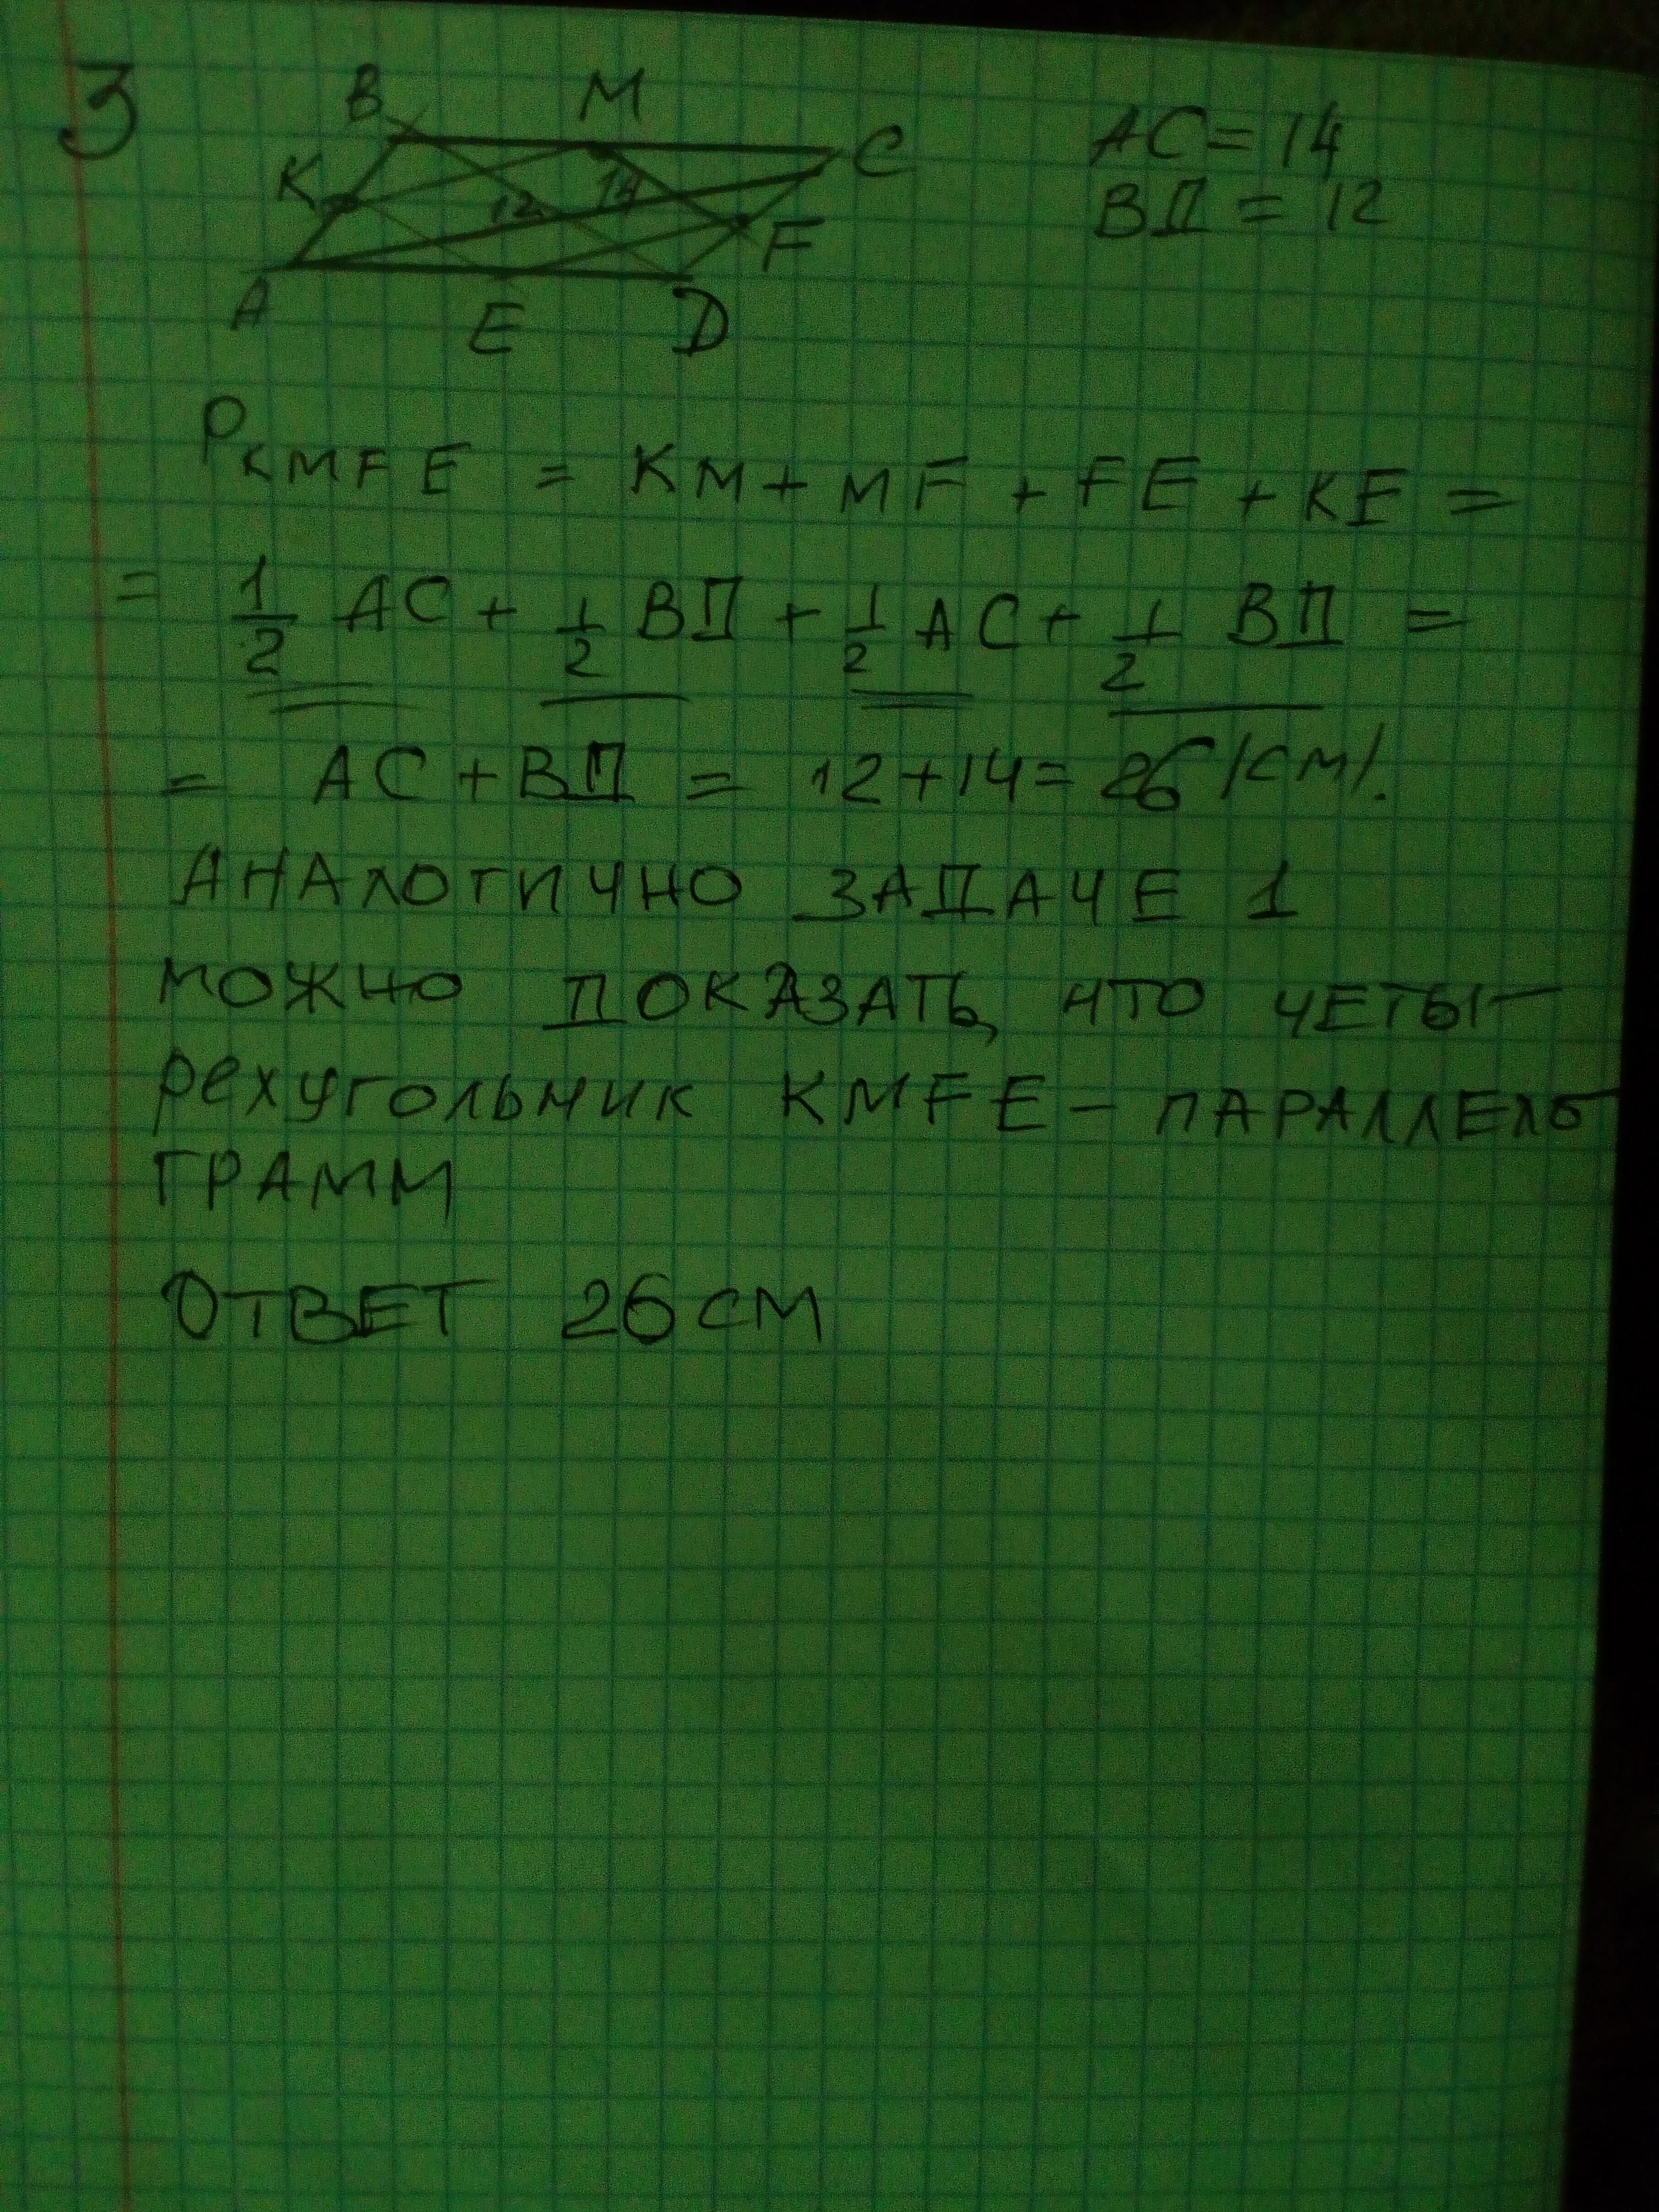 3
B M C
K 12 14 F
A E D
AC = 14
ВД = 12
P KMFE = KM + MF + FE + KE =
= 1/2 AC + 1/2 ВД + 1/2 AC + 1/2 ВД =
= AC + ВД = 12 + 14 = 26 /см/.
Аналогично задаче 1
можно показать, что четы-
рехугольник KMFE - параллело
грамм
Ответ 26 см